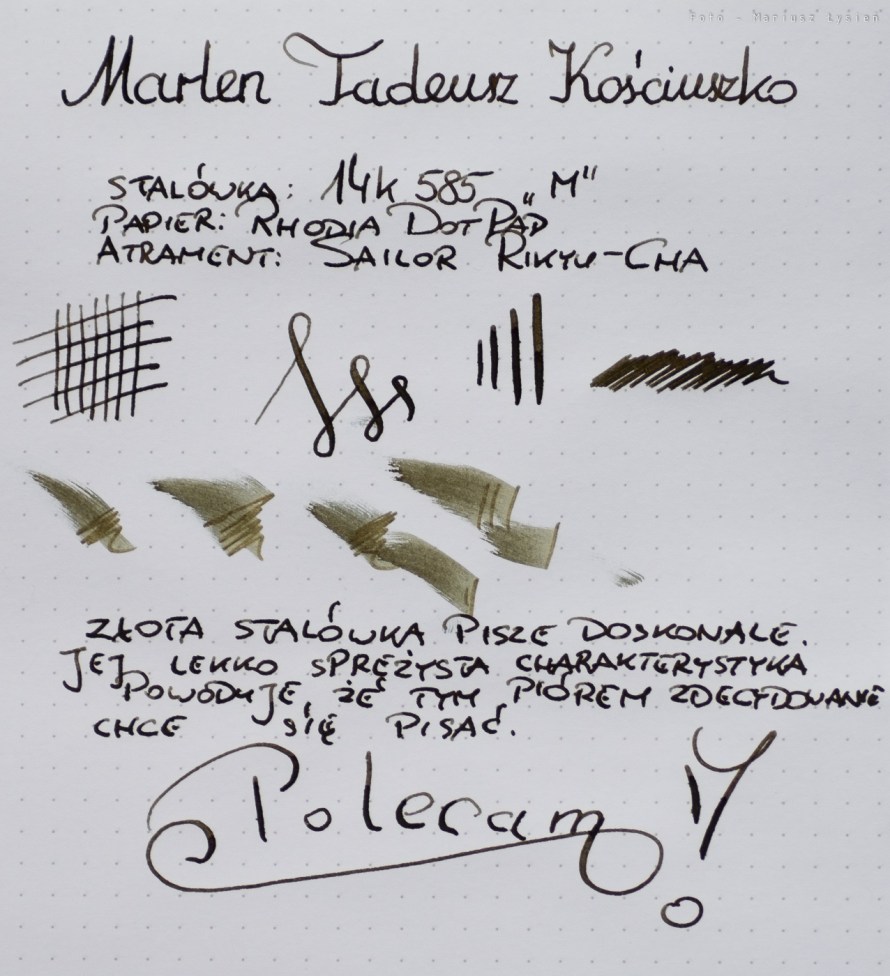 Foto - Mariusz Łysień
Marlen Tadeusz Kościuszko
STALÓWKA: 14K 585 „M"
PAPIER: RHODIA DOTPAD
ATRAMENT: SAILOR RIKYU-CHA
ZŁOTA STALÓWKA PISZE DOSKONALE.
JEJ LEKKO SPRĘŻYSTA CHARAKTERYSTYKA
POWODUJE, ŻE TYM PIÓREM ZDECYDOWANIE
CHCE SIĘ PISAĆ.
Polecam!